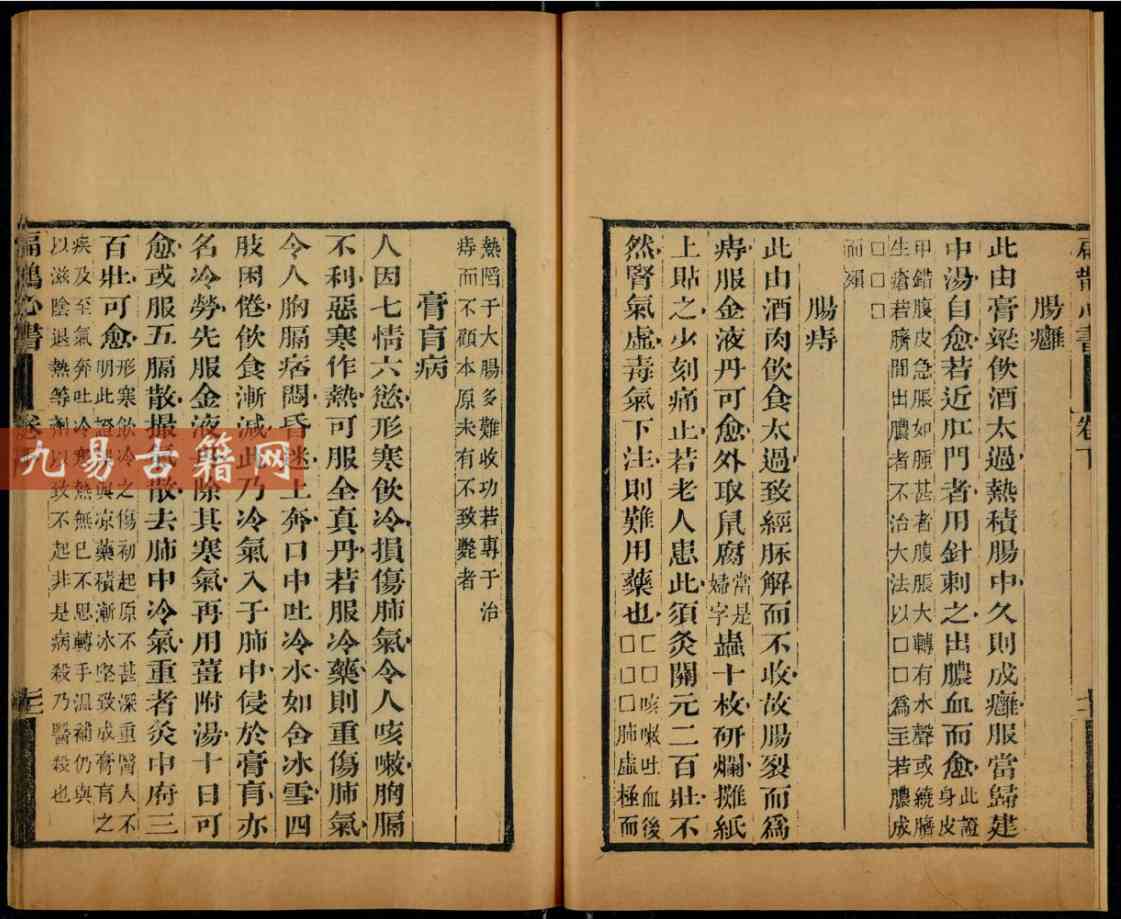 腸癰
此由膏粱飲酒太過熱積腸中久則成癰服當歸建
中湯自愈若近肛門者用針刺之出膿血而愈此證身皮
甲錯腹皮急脹如腫甚者腹脹大轉有水聲或繞臍
生瘡若臍間出膿者不治大法以□□為至若膿成
□□□
而
腸痔
此由酒肉飲食太過致經脉解而不收故腸裂而爲
痔服金液丹可愈外取鼠腐當是婦字蟲十枚研爛攤紙
上貼之少刻痛止若老人患此須灸關元二百壯不
然腎氣虛毒氣下注則難用藥也□□咳嗽吐血後
□□□肺虛極而
熱陷于大腸多難收功若專于治
痔而不顧本原未有不致斃者
膏肓病
人因七情六慾形寒飲冷損傷肺氣令人咳嗽胸膈
不利惡寒作熱可服全真丹若服冷藥則重傷肺氣
令人胸膈痞悶昏迷上奔口中吐冷水如含冰雪四
肢困倦飲食漸減此乃冷氣入于肺中侵於膏肓亦
名冷勞先服金液丹除其寒氣再用薑附湯十日可
愈或服五膈散撮氣散去肺中冷氣重者灸中府三
百壯可愈形寒飲冷之傷初起原不甚深重醫人不
明此證與凉藥積漸冰堅致成膏肓之
疾及至氣奔吐冷寒熱無已不思轉手溫補仍與
以滋陰退熱等劑以致不起非是病殺乃醫殺也
扁鵲心書
九易古籍网